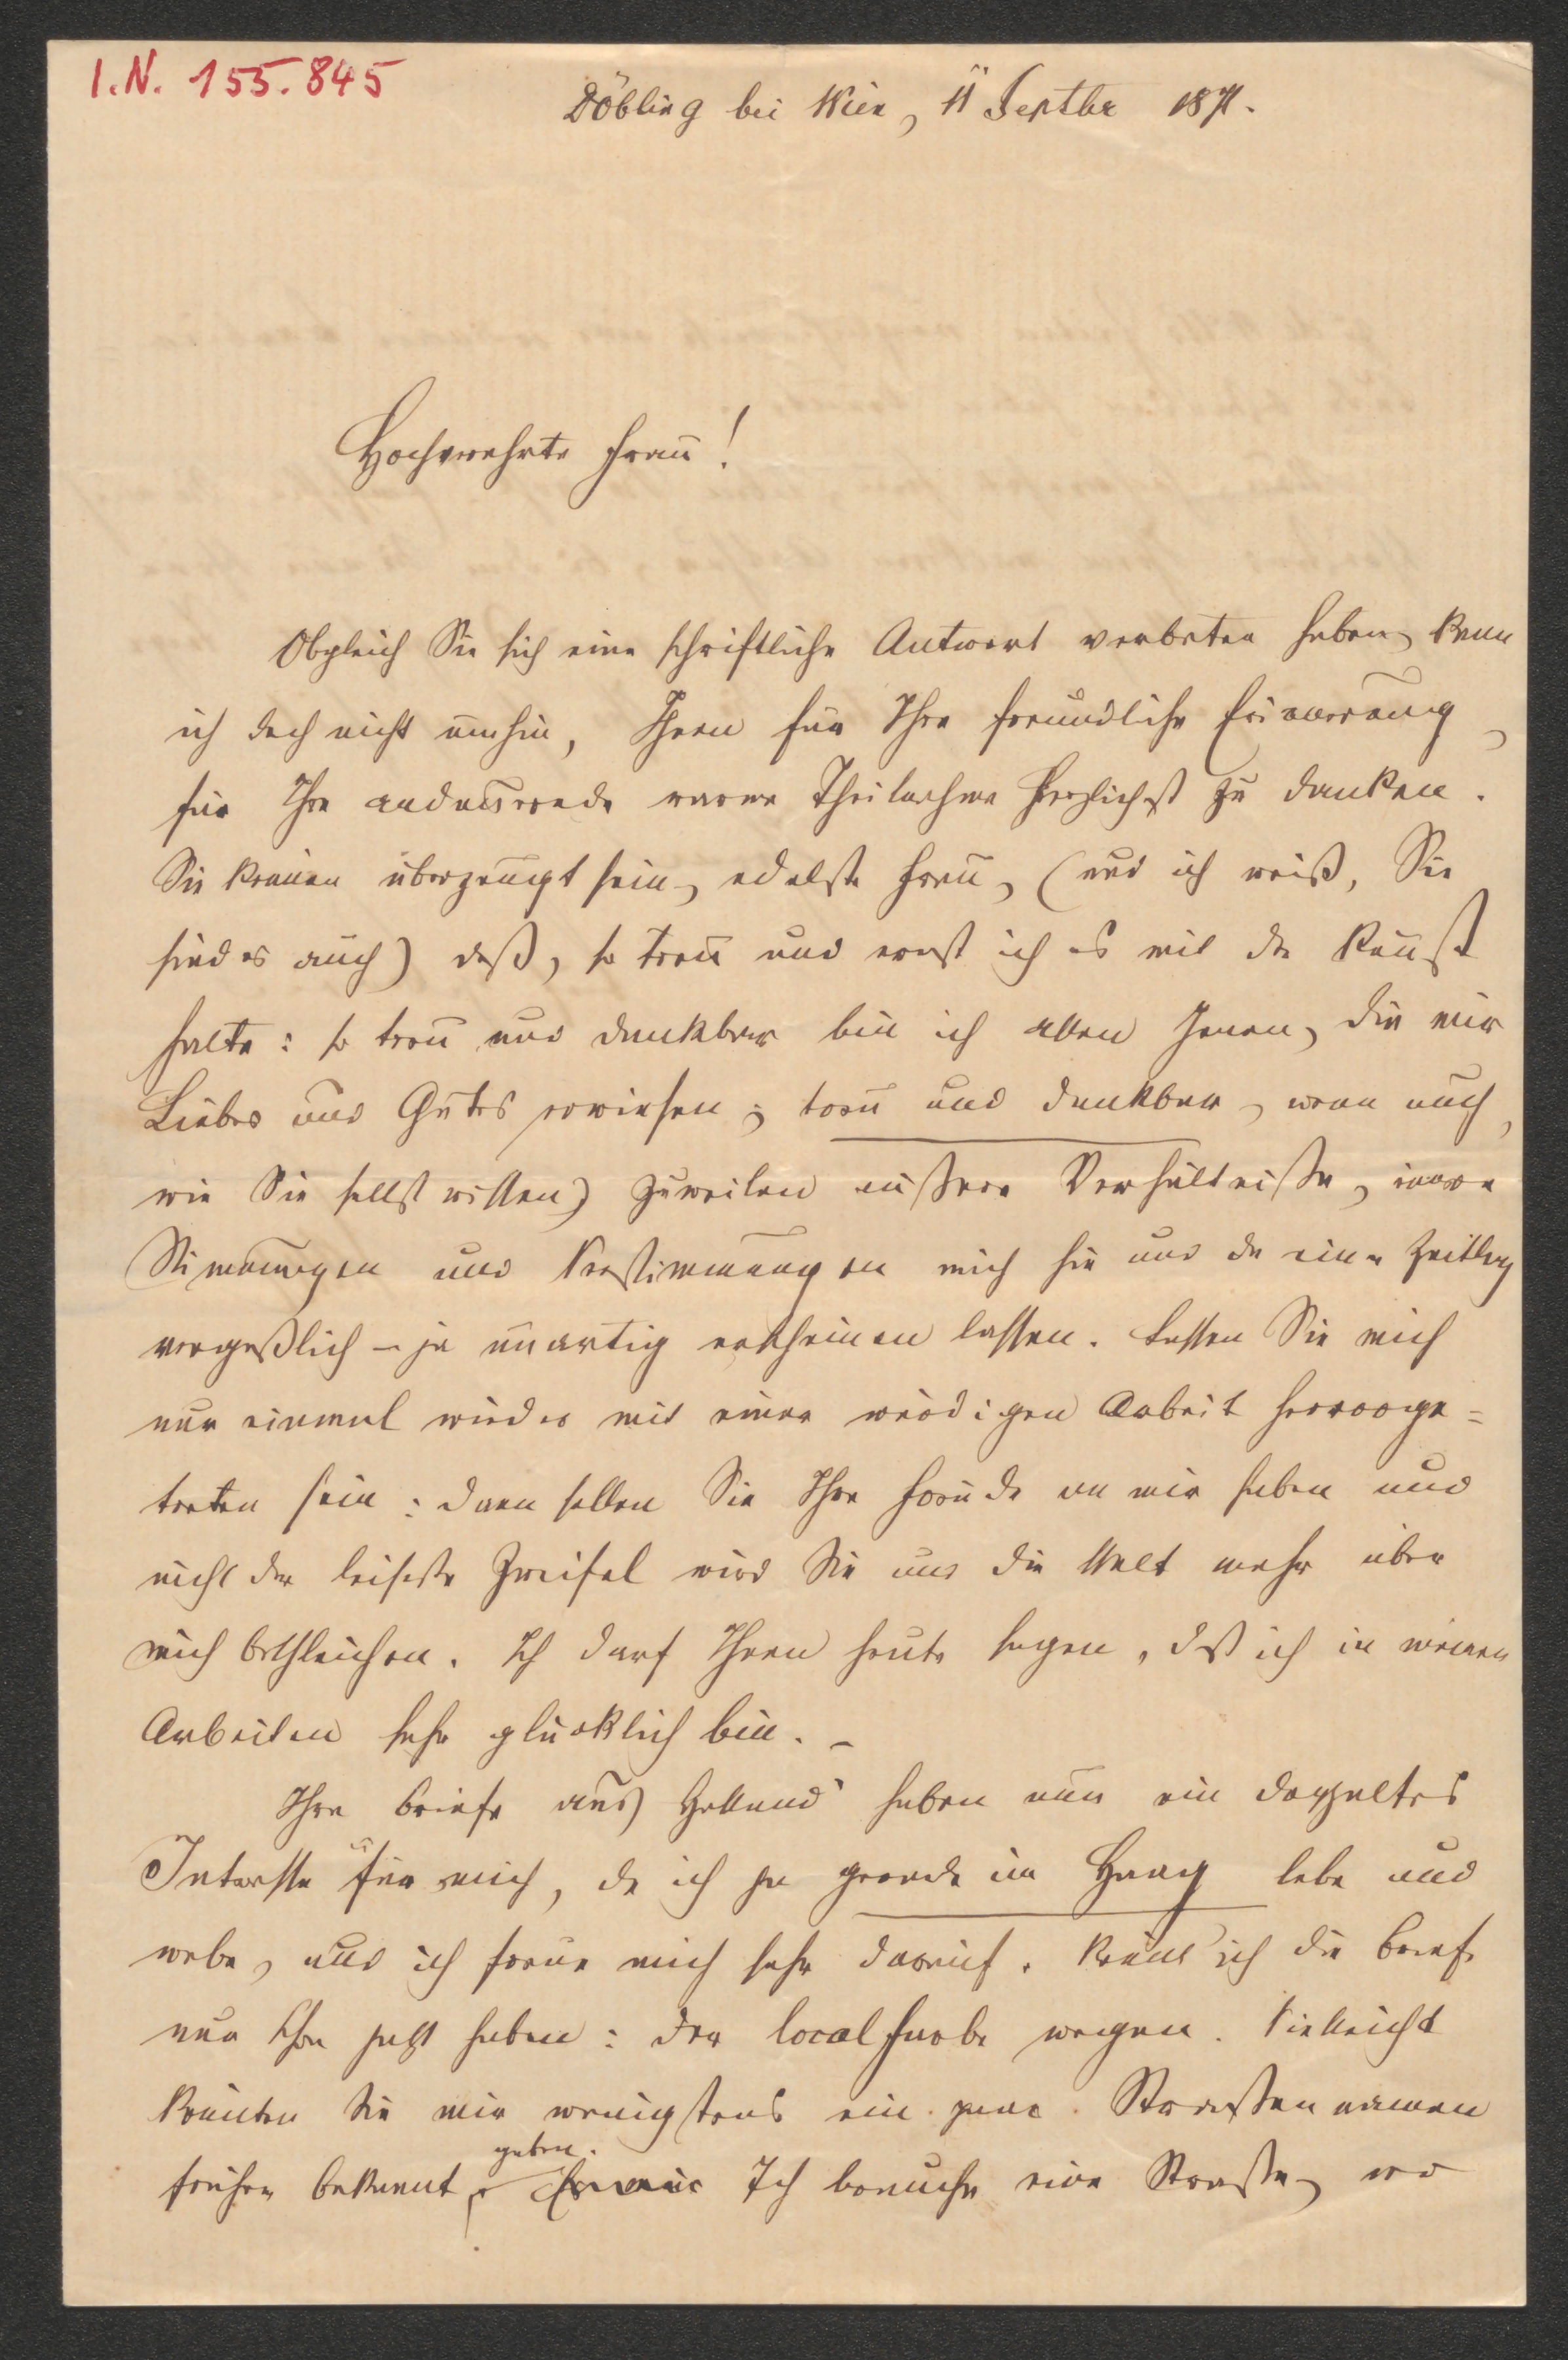 I.N. 155.845
Döbling bei Wien, 11 Septbr 1871.
Hochverehrte Frau!
Obgleich Sie sich eine schriftliche Antwort verbeten haben, kann
ich doch nicht umhin, Ihnen für Ihre freundliche Erinnerung,
für Ihre andauernde warme Theilnahme herzlichst zu danken.
Sie können überzeugt sein, edelste Frau, (und ich weiß, Sie
sind es auch) daß, so treu und ernst ich es mit der Kunst
halte: so treu und dankbar bin ich allen Jenen, die mir
Liebes und Gutes erwiesen; treu und dankbar, wenn auch,
wie Sie selbst wissen, zuweilen äußere Verhältniße, innere
Stimmungen und Verstimmungen mich hie und da eine Zeitlang
vergeßlich – ja unartig erscheinen lassen. Lassen Sie mich
nur einmal wieder mit einer würdigen Arbeit hervorge=
treten sein: dann sollen Sie Ihre Freude an mir haben und
nicht der leiseste Zweifel wird Sie und die Welt mehr über
mich beschleichen. Ich darf Ihnen heute sagen, daß ich in meinen
Arbeiten sehr glücklich bin. –
Ihre Briefe aus Holland haben nun ein doppeltes
Interesse für mich, da ich ja gerade im Haag lebe und
webe, und ich freue mich sehr darauf. Könnt' ich die Briefe
nur schon jetzt haben: der Localfarbe wegen. Vielleicht
könnten Sie mir wenigstens ein paar Strassennamen
früher bekannt geben. Ich brauche eine Strasse, wo